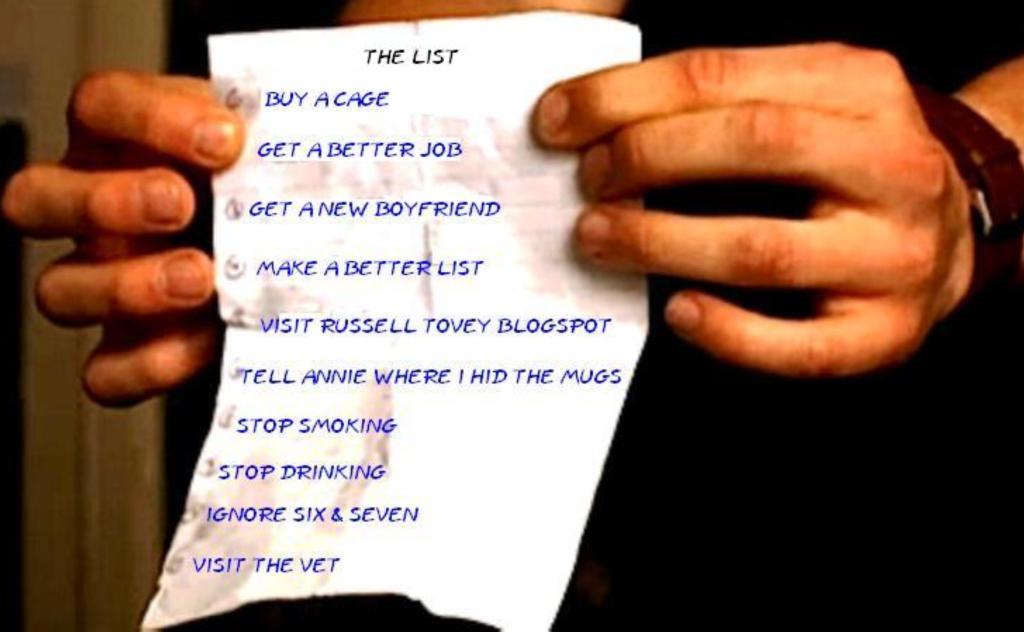 THE LIST
BUY A CAGE
GET A BETTER JOB
GET A NEW BOYFRIEND
MAKE A BETTER LIST
VISIT RUSSELL TOVEY BLOGSPOT
TELL ANNIE WHERE I HID THE MUGS
STOP SMOKING
STOP DRINKING
IGNORE SIX & SEVEN
VISIT THE VET